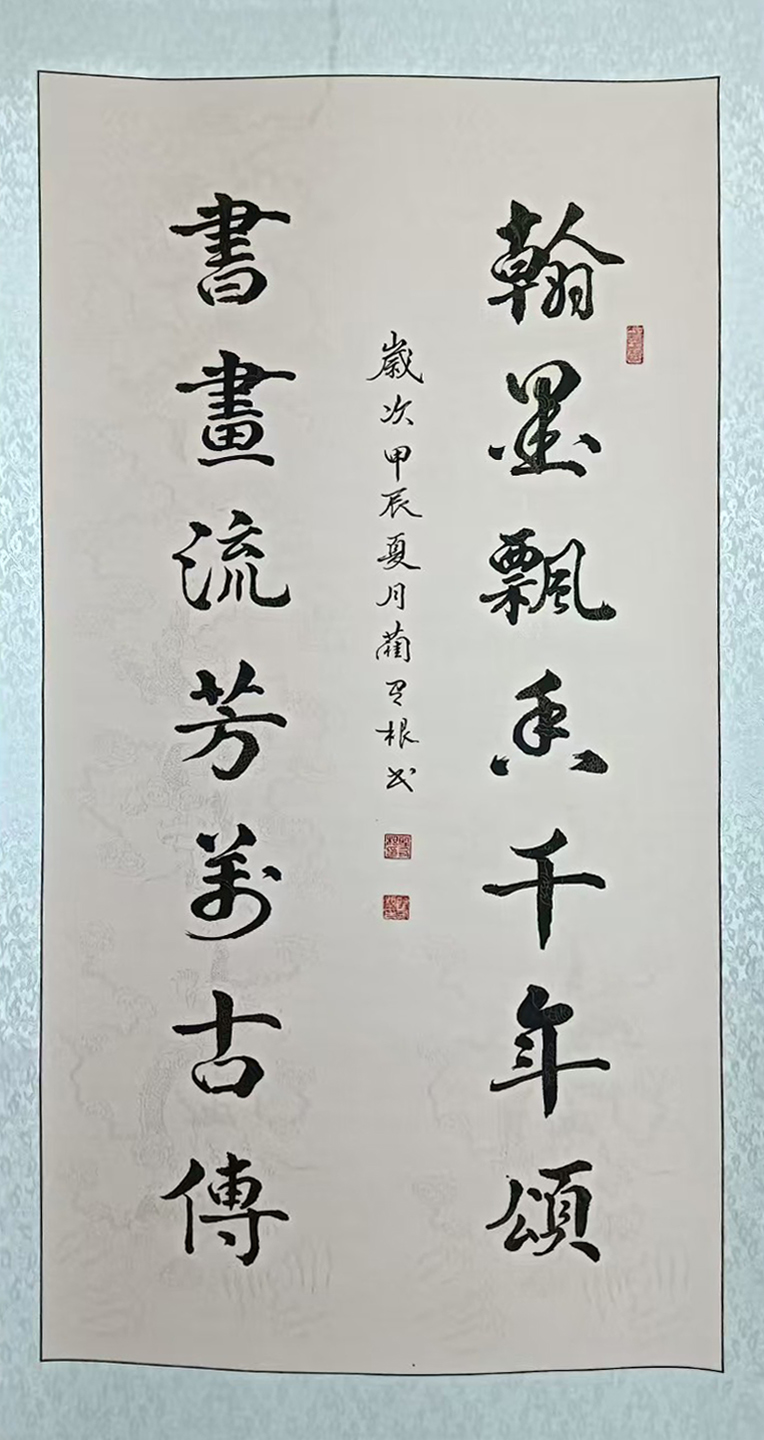 翰墨飄香千年頌
歲次甲辰夏月藺根書
書畫流芳萬古傳